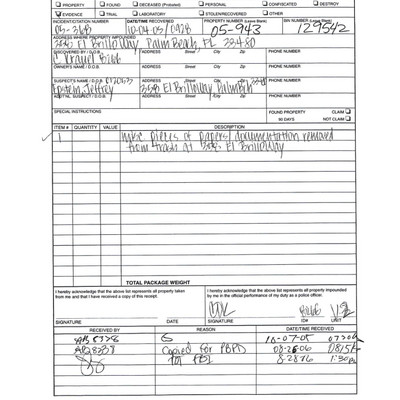 PROPERTY FOUND DECEASED (Probated) PERSONAL CONFISCATED DESTROY
EVIDENCE TRIAL LABORATORY STOLEN/RECOVERED OTHER
INCIDENT/CITATION NUMBER DATE/TIME RECOVERED PROPERTY NUMBER (Leave Blank) BIN NUMBER (Leave Blank)
05-368 10-04-05/0928 05-943 129542
ADDRESS WHERE PROPERTY IMPOUNDED
358 El Brillo Way, Palm Beach, FL 33480
DISCOVERED BY / D.O.B. ADDRESS Street City Zip PHONE NUMBER
OWNER'S NAME / D.O.B. ADDRESS Street City Zip PHONE NUMBER
SUSPECT'S NAME / D.O.B. ADDRESS Street City Zip PHONE NUMBER
Epstein, Jeffrey 358 El Brillo Way, Palm Bch
SUSPECT / D.O.B. ADDRESS Street City Zip PHONE NUMBER
SPECIAL INSTRUCTIONS FOUND PROPERTY CLAIM
90 DAYS NOT CLAIM
ITEM # QUANTITY VALUE DESCRIPTION
1 misc pieces of papers/documentation removed
from trash at 358 El Brillo Way
TOTAL PACKAGE WEIGHT
I hereby acknowledge that the above list represents all property taken from me and that I have received a copy of this receipt.
I hereby acknowledge that the above list represents all property impounded by me in the official performance of my duty as a police officer.
SIGNATURE DATE SIGNATURE ID# UNIT
RECEIVED BY REASON DATE/TIME RECEIVED
10-07-05
Copied for PBPD 08-28-06
for FBI 8-28-06 1:30p